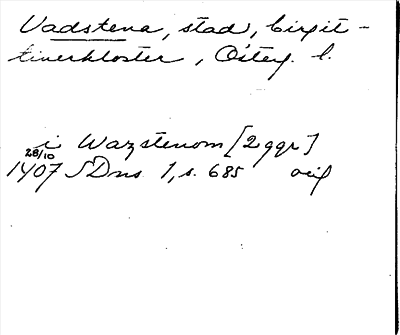 Vadstena, stad, birgit-
tinerkloster, Österg. l.
i Wazstenom [2 ggr]
28/10
1407 SDns 1, s. 685